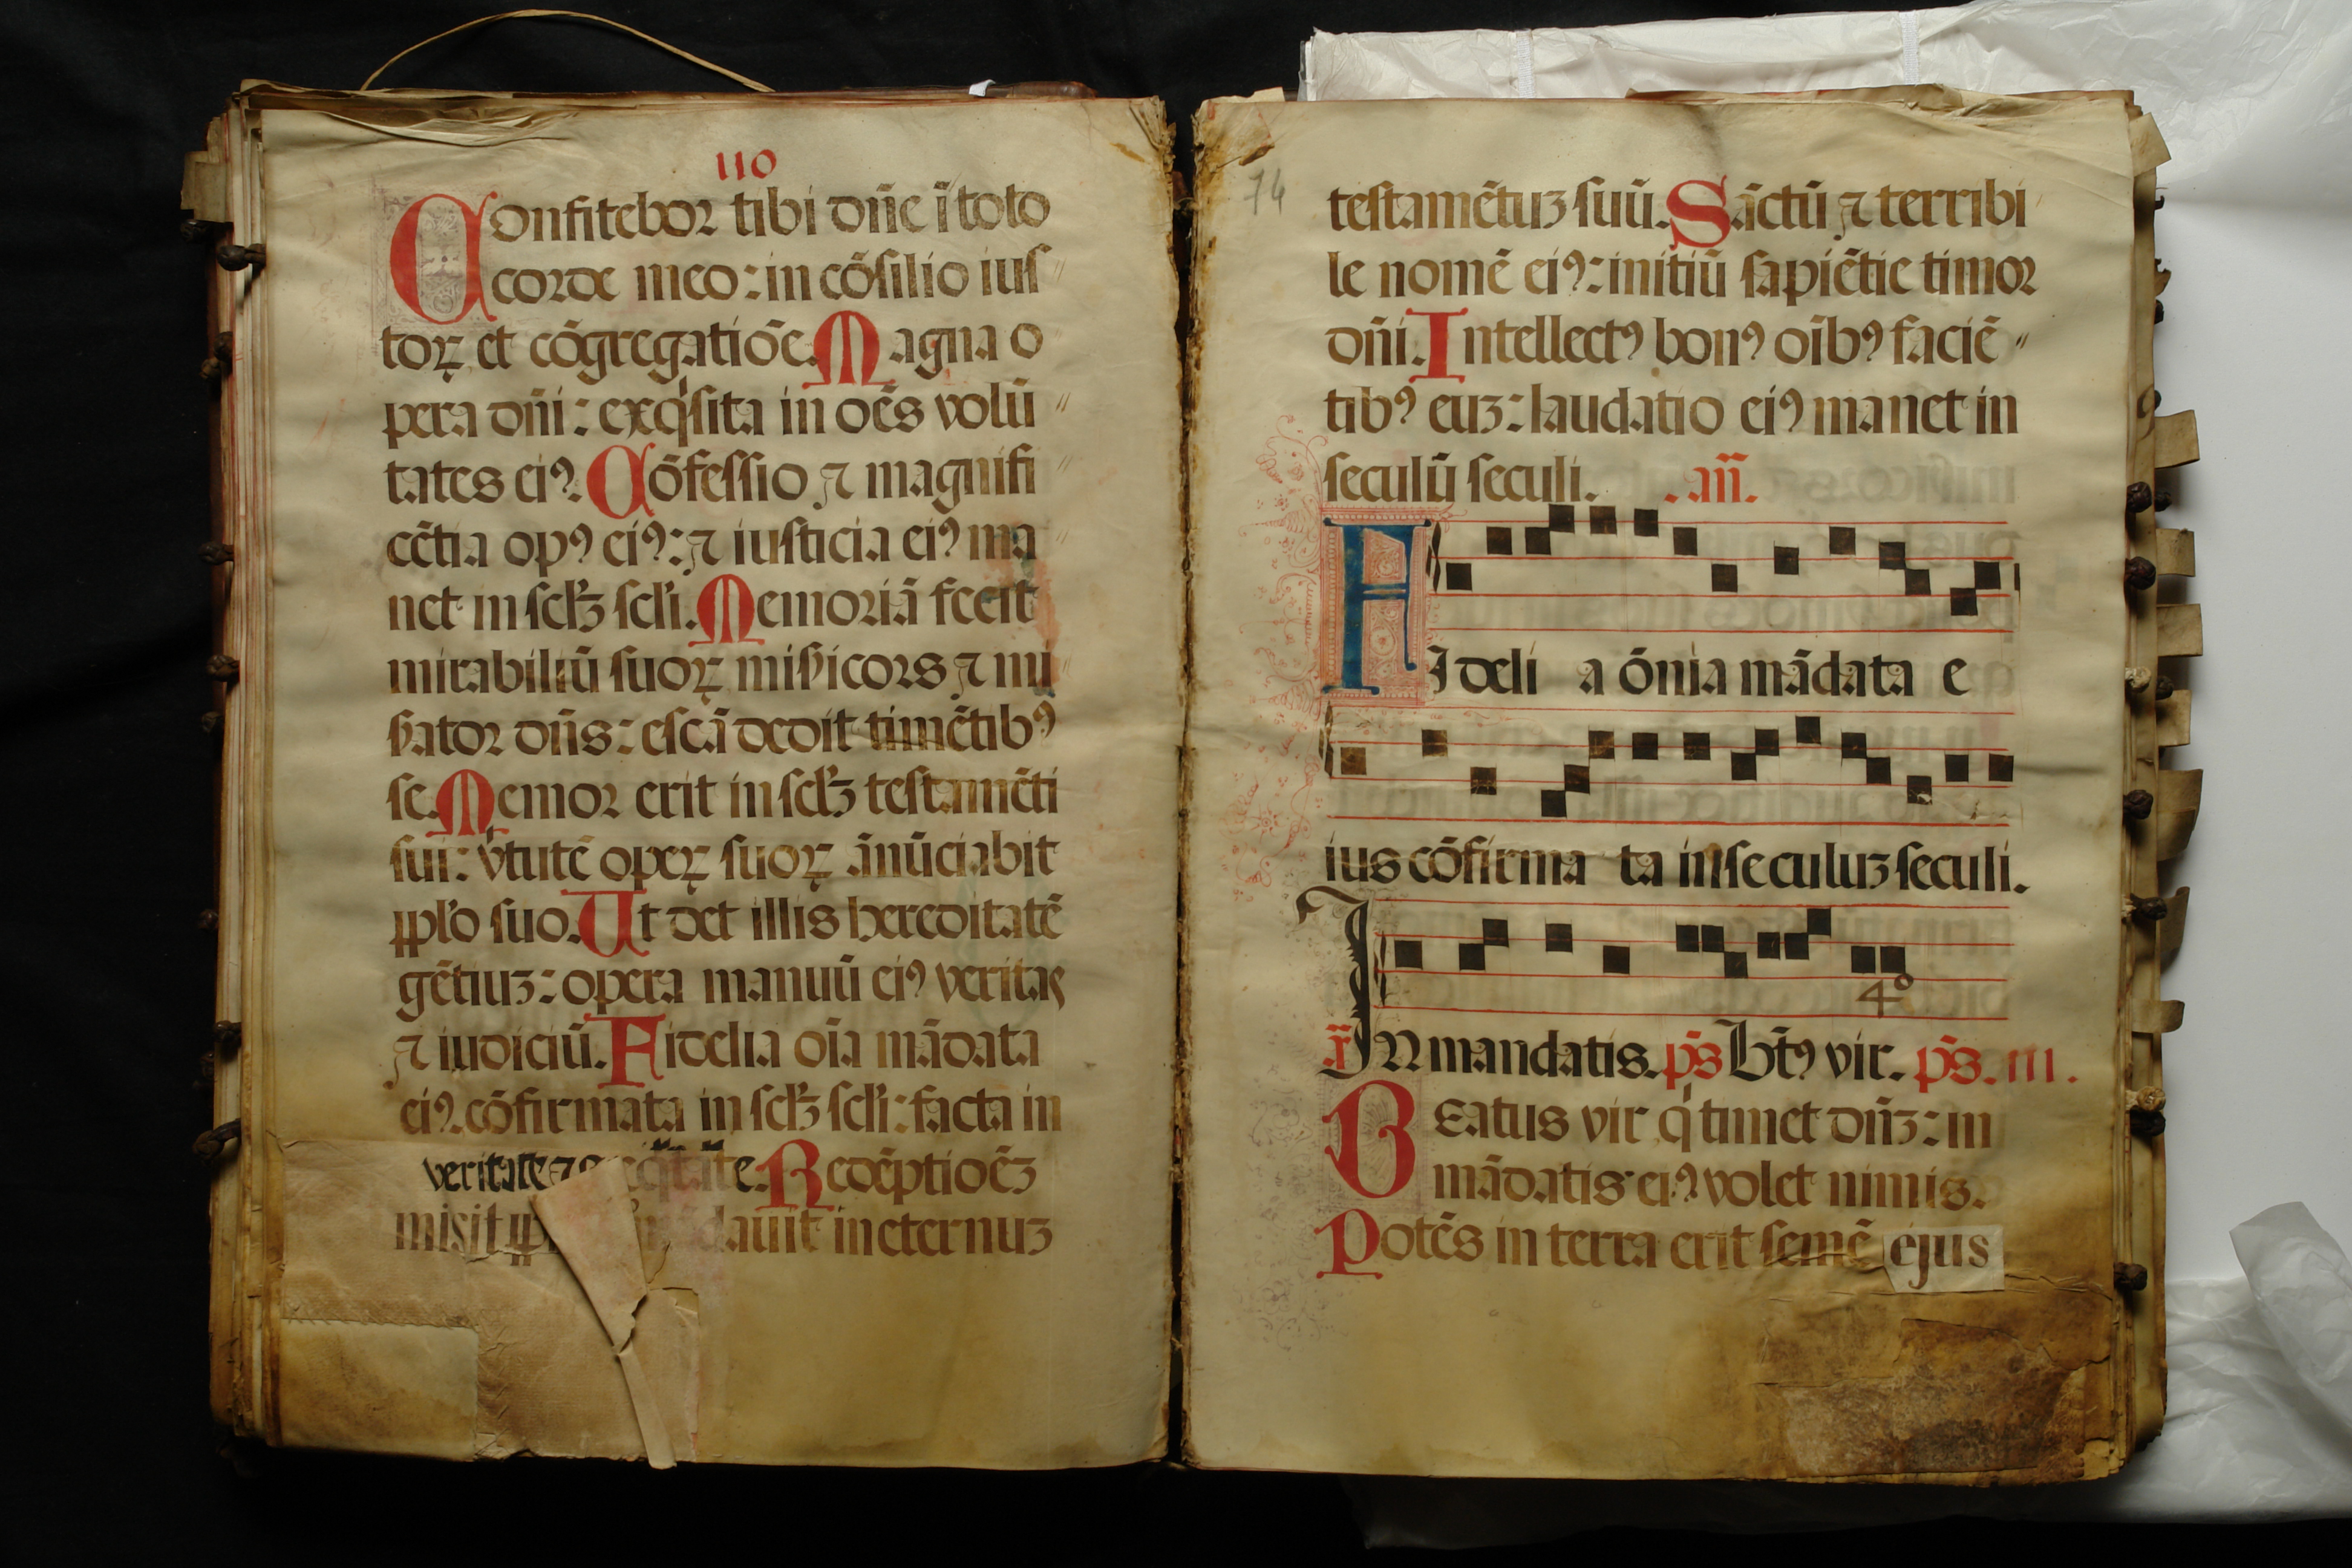 110
Confitebor tibi dñe ĩ toto
corde meo: in cõsilio ius〃
toꝝ et cõgregatiõe. Magna o
pera dñi: exq̍sita in oẽs volũ〃
tates eiꝰ. Cõfessio ⁊ magnifi〃
cẽtia opꝰ eiꝰ: ⁊ iusticia eiꝰ ma
net in sclꝫ scli. Memoriã fecit
mirabiliũ suoꝝ miẜicors ⁊ mi〃
ẜator dñs: escã dedit timẽtibꝰ
se. Memor erit in sclꝫ testamẽti
sui: v̓tutẽ opeꝝ suoꝝ ãnũciabit
pplo suo. Ut det illis hereditatẽ
gẽtiuꝫ: opera manuũ eiꝰ veritas
⁊ iudiciũ. Fidelia oĩa mãdata
eiꝰ. cõfirmata in sclꝫ scli: facta in
veritate ⁊ eq̍tate. Redẽptioẽꝫ
misit in eternuꝫ
74
testamẽtuꝫ suũ. Sãctũ ⁊ terribi
le nomẽ eiꝰ: initiũ sapiẽtie timor
dñi. Intellectꝰ bonꝰ oĩbꝰ faciẽ〃
tibꝰ euꝫ: laudatio eiꝰ manet in
seculũ seculi. .añ.
FIdeli a õnia mãdata e
ius cõfirma ta in seculuꝫ seculi.
4º
IN mandatis. p̃s Bt̃ꝰ vir. p̃s. 111.
BEatus vir q̍ timet dñꝫ: in
mãdatis eiꝰ volet nimis.
Potẽs in terra erit semẽ ejus